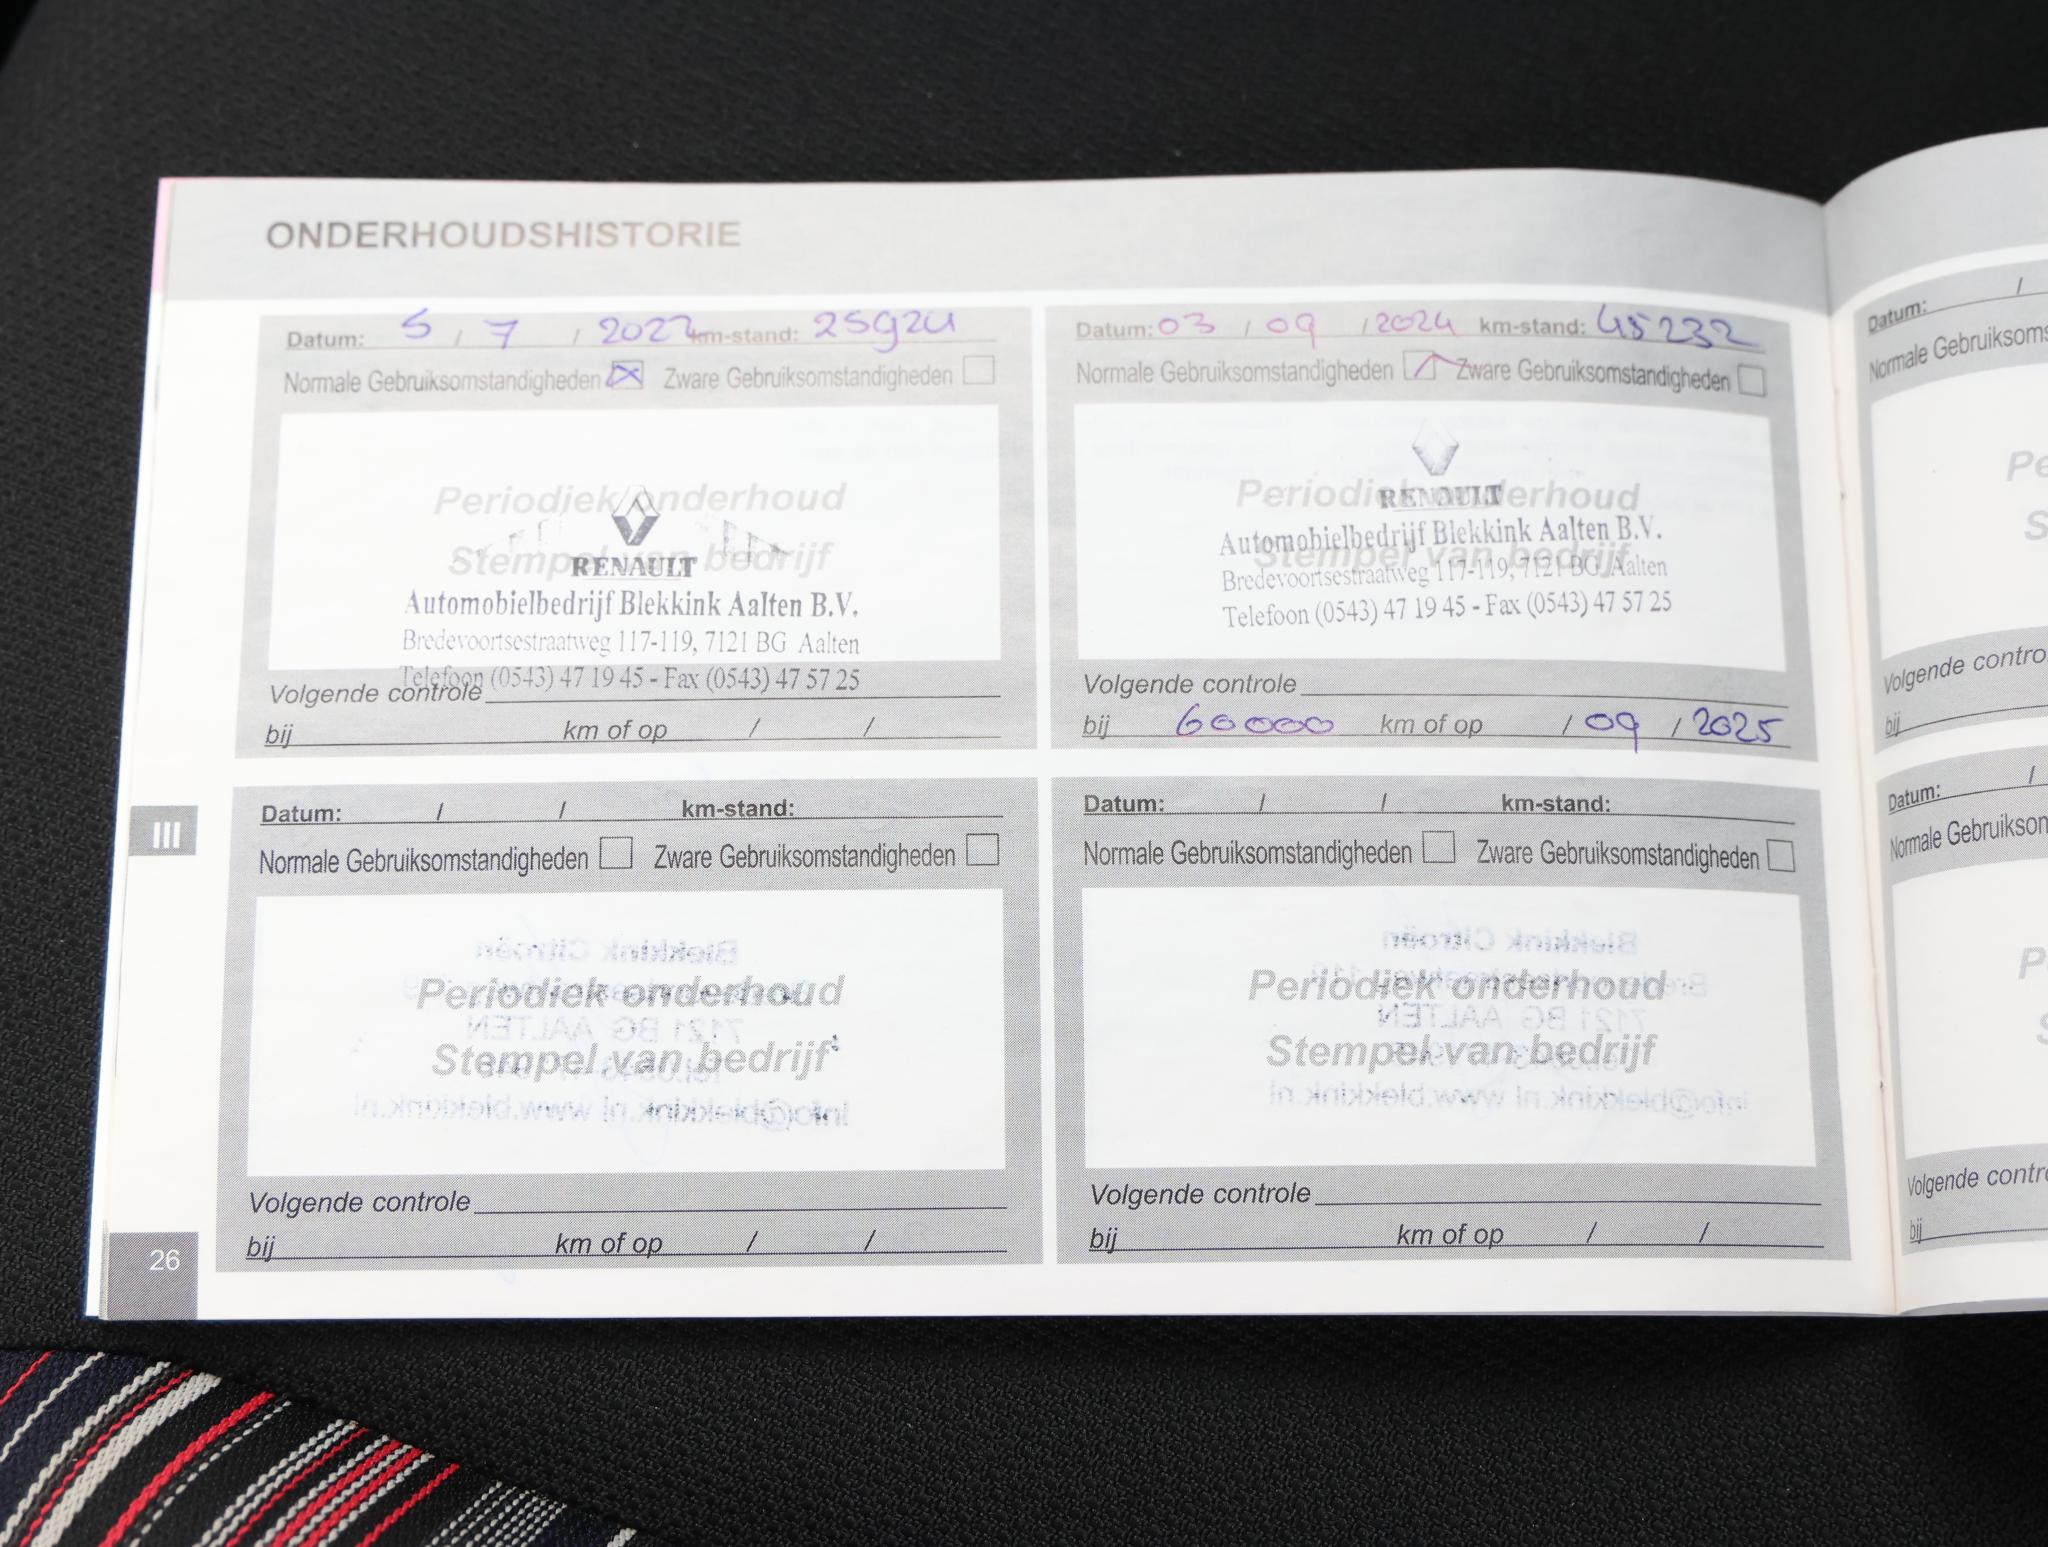 ONDERHOUDSHISTORIE
Datum: 5 / 7 / 2022 km-stand: 25924
Normale Gebruiksomstandigheden Zware Gebruiksomstandigheden
Periodiek onderhoud
Stempel van bedrijf
RENAULT
Automobielbedrijf Blekkink Aalten B.V.
Bredevoortsestraatweg 117-119, 7121 BG Aalten
Telefoon (0543) 47 19 45 - Fax (0543) 47 57 25
Volgende controle
bij km of op / /
Datum: 03 / 09 / 2024 km-stand: 45232
Normale Gebruiksomstandigheden Zware Gebruiksomstandigheden
Periodiek onderhoud
Stempel van bedrijf
RENAULT
Automobielbedrijf Blekkink Aalten B.V.
Bredevoortsestraatweg 117-119, 7121 BG Aalten
Telefoon (0543) 47 19 45 - Fax (0543) 47 57 25
Volgende controle
bij 60000 km of op / 09 / 2025
Datum: / / km-stand:
Normale Gebruiksomstandigheden Zware Gebruiksomstandigheden
Periodiek onderhoud
Stempel van bedrijf
Volgende controle
bij km of op / /
Datum: / / km-stand:
Normale Gebruiksomstandigheden Zware Gebruiksomstandigheden
Periodiek onderhoud
Stempel van bedrijf
Volgende controle
bij km of op / /
III
26
Datum: /
Normale Gebruiksoms
Pe
S
Volgende contro
bij
Datum: /
Normale Gebruikson
P
S
Volgende contro
bij